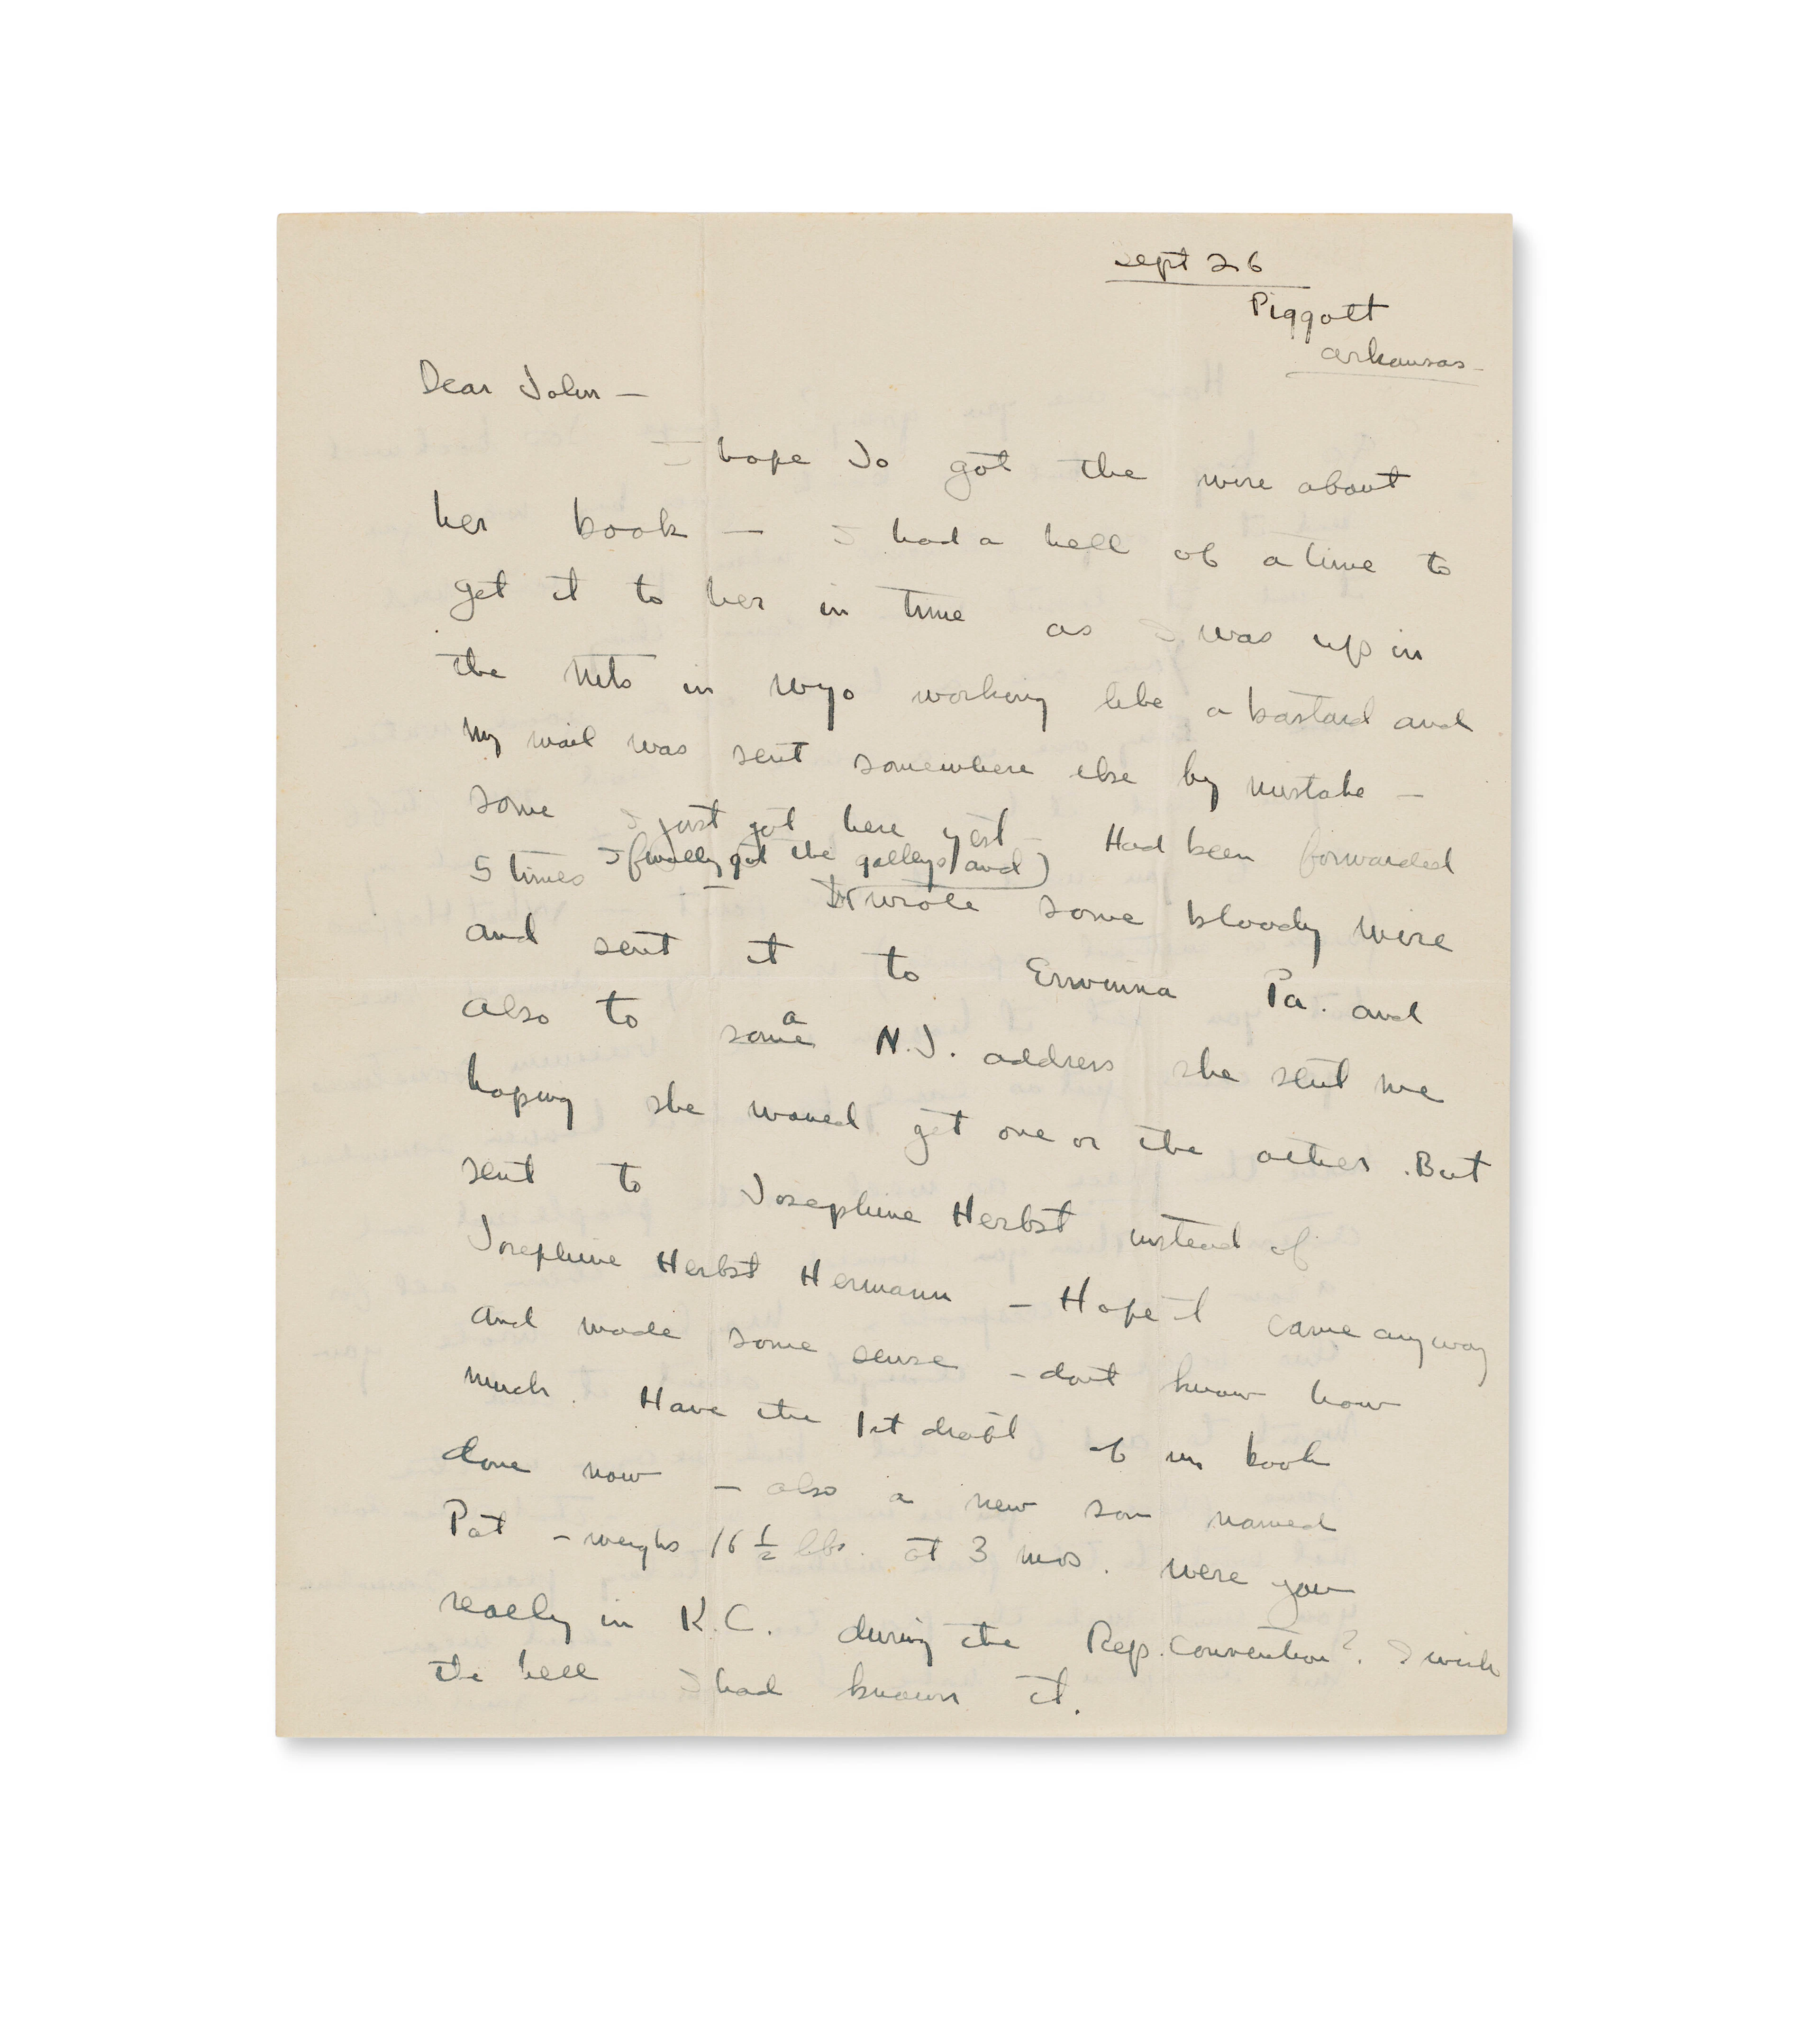 Sept 26
Piggott
Arkansas
Dear John —
I hope Jo got the wire about
her book — I had a hell of a time to
get it to her in time as I was up in
the Mts in Wyo working like a bastard and
my mail was sent somewhere else by mistake —
some I just got here yest — Had been forwarded
I finally got the galleys and
5 times — wrote some bloody wire
and sent it to Erwinna Pa. and
also to some a N.J. address she sent me
hoping she would get one or the other. But
sent to Josephine Herbst instead of
Josephine Herbst Hermann — Hope it came anyway
and made some sense — dont know how
much. Have the 1st draft of my book
done now — also a new son named
Pat — weighs 16 ½ lbs. at 3 mos. Were you
really in K.C. during the Rep. Convention? I wish
the hell I had known it.